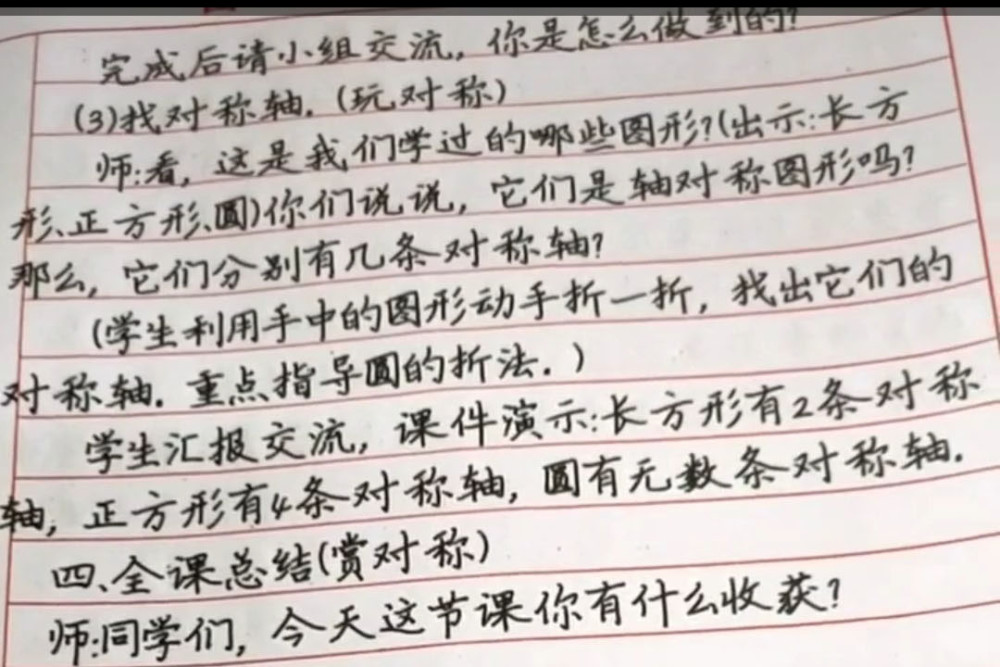 完成后请小组交流,你是怎么做到的?
(3)找对称轴.(玩对称)
师:看,这是我们学过的哪些图形?(出示:长方
形、正方形、圆)你们说说,它们是轴对称图形吗?
那么,它们分别有几条对称轴?
(学生利用手中的图形动手折一折,找出它们的
对称轴.重点指导圆的折法.)
学生汇报交流,课件演示:长方形有2条对称
轴,正方形有4条对称轴,圆有无数条对称轴.
四、全课总结(赏对称)
师:同学们,今天这节课你有什么收获?